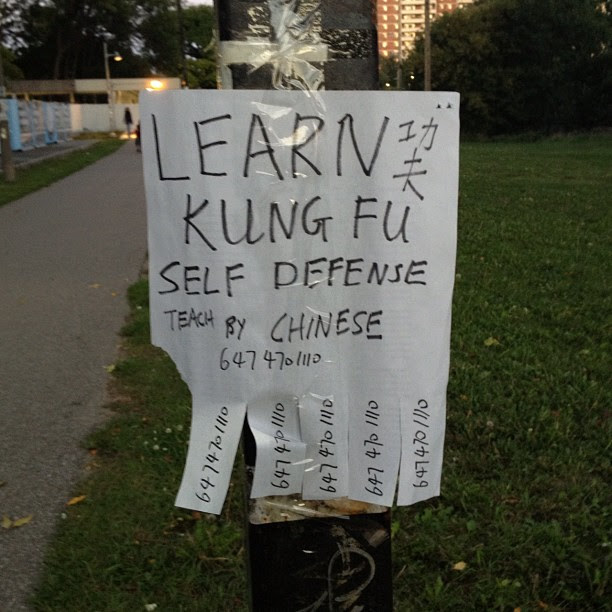 LEARN 功夫
KUNG FU
SELF DEFENSE
TEACH BY CHINESE
647 470 1110
647 470 1110
647 470 1110
647 470 1110
647 470 1110
647 470 1110